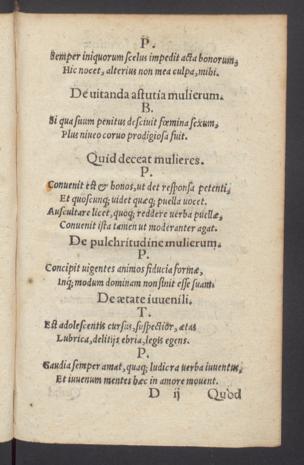 P.
Semper iniquorum scelus impedit acta bonorum,
Hic nocet, alterius non mea culpa, mihi.
De uitanda astutia mulierum.
B.
Si qua suum penitus desciuit fœmina sexum,
Plus niueo coruo prodigiosa fuit.
Quid deceat mulieres.
P.
Conuenit est & honos, ut det responsa petenti,
Et quoscunq; uidet quæq; puella uocet.
Auscultare licet, quoq; reddere uerba puellæ,
Conuenit ista tamen ut moderanter agat.
De pulchritudine mulierum.
P.
Concipit uigentes animos fiducia formæ,
Inq; modum dominam non sinit esse suam.
De ætate iuuenili.
T.
Est adolescentis cursus, suspectior, ætas
Lubrica, delitijs ebria, legis egens.
P.
Gaudia semper amat, quæq; ludicra uerba iuuentus,
Et iuuenum mentes hæc in amore mouent.
D ij Quod